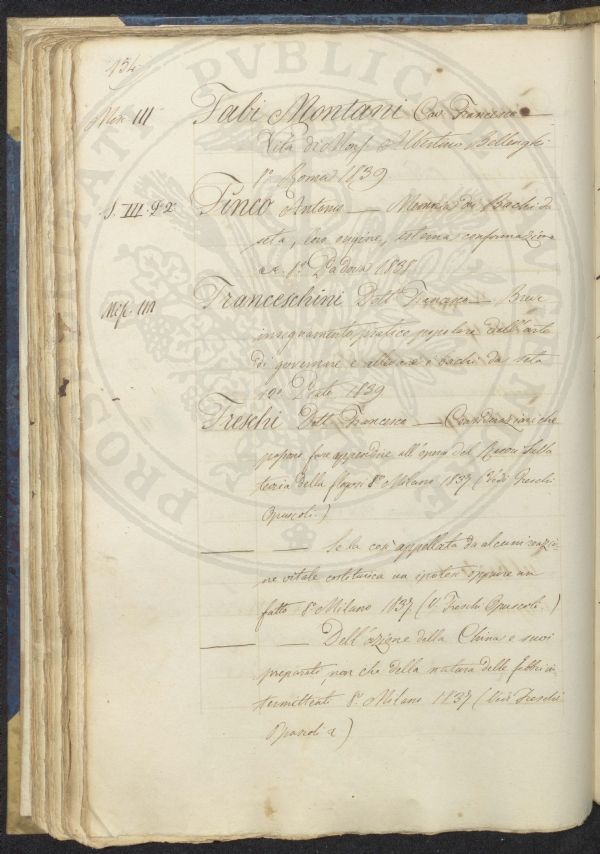 134
PROSPERITATI PUBLICAE
Misc. III Fabi Montani Cav. Francesco —
Vita di Mons. Albertino Bellenghi
8° Roma 1839
S. III. 92 Fineo Antonio — Mem. dei Bachi da
seta, loro origine, esterna conformazione
8° Padova 1838
Misc. III Franceschini Dott. Francesco — Breve
insegnamento pratico popolare dell'arte
di governare e allevare i bachi da seta
Prato 1839
Freschi Dott. Francesco — Considerazioni che
possono fare appendice all'opera del
teoria della flogosi 8° Milano 1837 (Vedi Freschi
Opuscoli.)
— — Se la così appellata da alcuni reazio-
ne vitale costituisca un ipotesi oppure un
fatto 8° Milano 1837 (V. Freschi Opuscoli.)
— — Dell'azione della China e suoi
preparati, non che della natura delle febbri in-
termittenti 8° Milano 1837 (Vedi Freschi
Opuscoli)